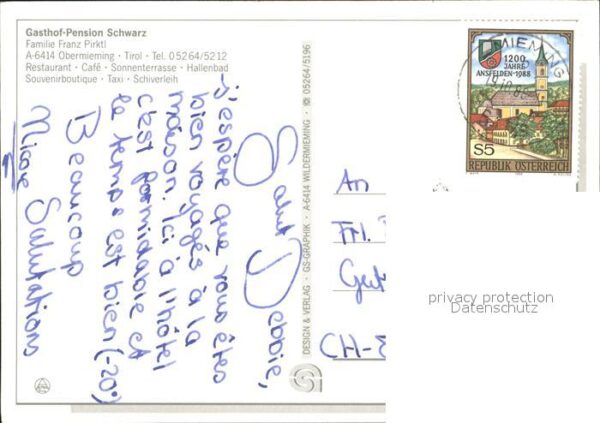 Gasthof-Pension Schwarz
Familie Franz Pirktl
A-6414 Obermieming · Tirol · Tel. 05264/5212
Restaurant · Café · Sonnenterrasse · Hallenbad
Souvenirboutique · Taxi · Schiverleih
Salut Debbie,
j'espère que vous êtes
bien voyagés à la
maison. Ici à l'hôtel
c'est formidable et
le temps est bien (-20°)
Beaucoup
Salutations
DESIGN & VERLAG · GS-GRAPHIK · A-6414 WILDERMIEMING · ☎ 05264/5196
MIEMING
1200
JAHRE
ANSFELDEN·1988
S5
REPUBLIK ÖSTERREICH
An
Frl.
CH-
privacy protection
Datenschutz